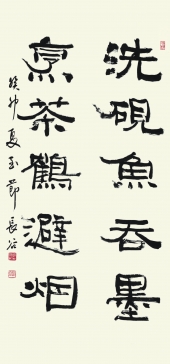 洗硯魚吞墨
烹茶鶴避烟
癸卯夏至節長谷